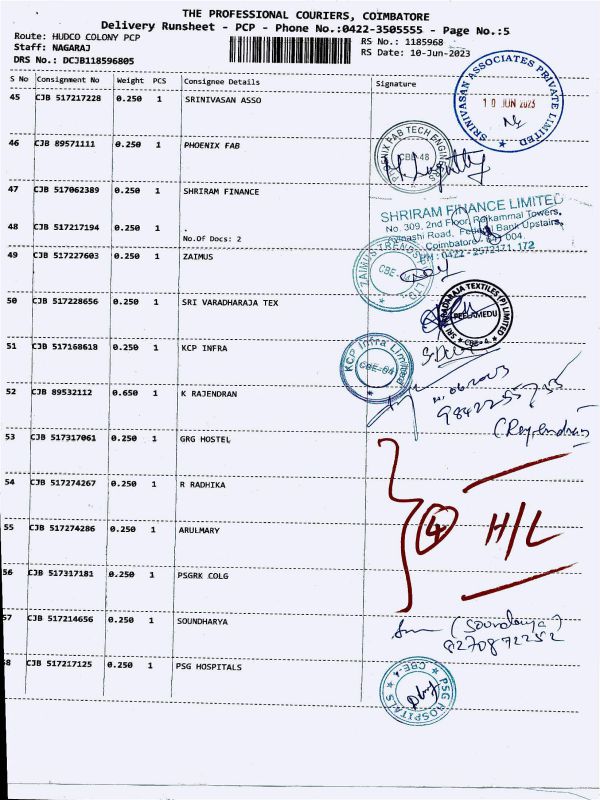 THE PROFESSIONAL COURIERS, COIMBATORE
Delivery Runsheet - PCP - Phone No.:0422-3505555 - Page No.:5
Route: HUDCO COLONY PCP
RS No.: 1185968
Staff: NAGARAJ
RS Date: 10-Jun-2023
DRS No.: DCJB118596805
S No Consignment No Weight PCS Consignee Details Signature
45 CJB 517217228 0.250 1 SRINIVASAN ASSO
SRINIVASAN ASSOCIATES PRIVATE LIMITED
10 JUN 2023
46 CJB 89571111 0.250 1 PHOENIX FAB
PHOENIX FAB TECH ENGINEERS
CBE-48
47 CJB 517062389 0.250 1 SHRIRAM FINANCE
SHRIRAM FINANCE LIMITED
No. 309, 2nd Floor, Rajkammal Towers,
Avinashi Road, Federal Bank Upstairs,
Coimbatore 004.
PH : 0422 - 2572171, 172
48 CJB 517217194 0.250 1 .
No.Of Docs: 2
49 CJB 517227603 0.250 1 ZAIMUS
CBE
50 CJB 517228656 0.250 1 SRI VARADHARAJA TEX
SRI VARADARAJA TEXTILES (P) LIMITED
PEELAMEDU
CBE-4
51 CJB 517168618 0.250 1 KCP INFRA
KCP Infra Limited
CBE-64
52 CJB 89532112 0.650 1 K RAJENDRAN
9842255755
(Rajendran)
53 CJB 517317061 0.250 1 GRG HOSTEL
54 CJB 517274267 0.250 1 R RADHIKA
4 H/L
55 CJB 517274286 0.250 1 ARULMARY
56 CJB 517317181 0.250 1 PSGRK COLG
57 CJB 517214656 0.250 1 SOUNDHARYA
(Soundarya)
8270892252
58 CJB 517217125 0.250 1 PSG HOSPITALS
PSG HOSPITALS
CBE-4